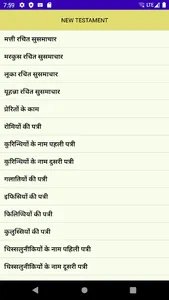 7:59
LTE
NEW TESTAMENT
मत्ती रचित सुसमाचार
मरकुस रचित सुसमाचार
लूका रचित सुसमाचार
यूहन्ना रचित सुसमाचार
प्रेरितों के काम
रोमियों की पत्री
कुरिन्थियों के नाम पहली पत्री
कुरिन्थियों के नाम दूसरी पत्री
गलातियों की पत्री
इफिसियों की पत्री
फिलिप्पियों की पत्री
कुलुस्सियों की पत्री
थिस्सलुनीकियों के नाम पहिली पत्री
थिस्सलुनीकियों के नाम दूसरी पत्री